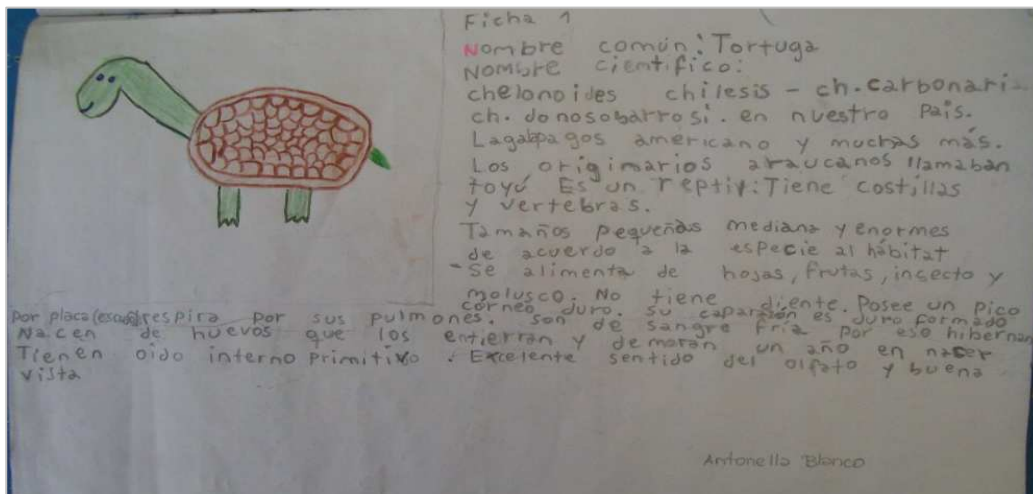 Ficha 1
Nombre común: Tortuga
Nombre cientifico:
chelonoides chilesis - ch. carbonari
ch. donosobarrosi. en nuestro Pais.
Lagabpagos americano y muchas más.
Los originarios araucanos llamaban
toyú Es un reptiv: Tiene costillas
y vertebras.
Tamaños pequeñas mediana y enormes
de acuerdo a la especie al hábitat
- Se alimenta de hojas, frutas, insecto y
molusco. No tiene diente. Posee un pico
corneo duro. Su caparazón es duro formado
por placa (escudo) respira por sus pulmones. son de sangre fria por eso hibernan
Nacen de huevos que los entierran y demoran un año en nacer
Tienen oido interno primitivo. Excelente sentido del olfato y buena
vista
Antonella Blanco